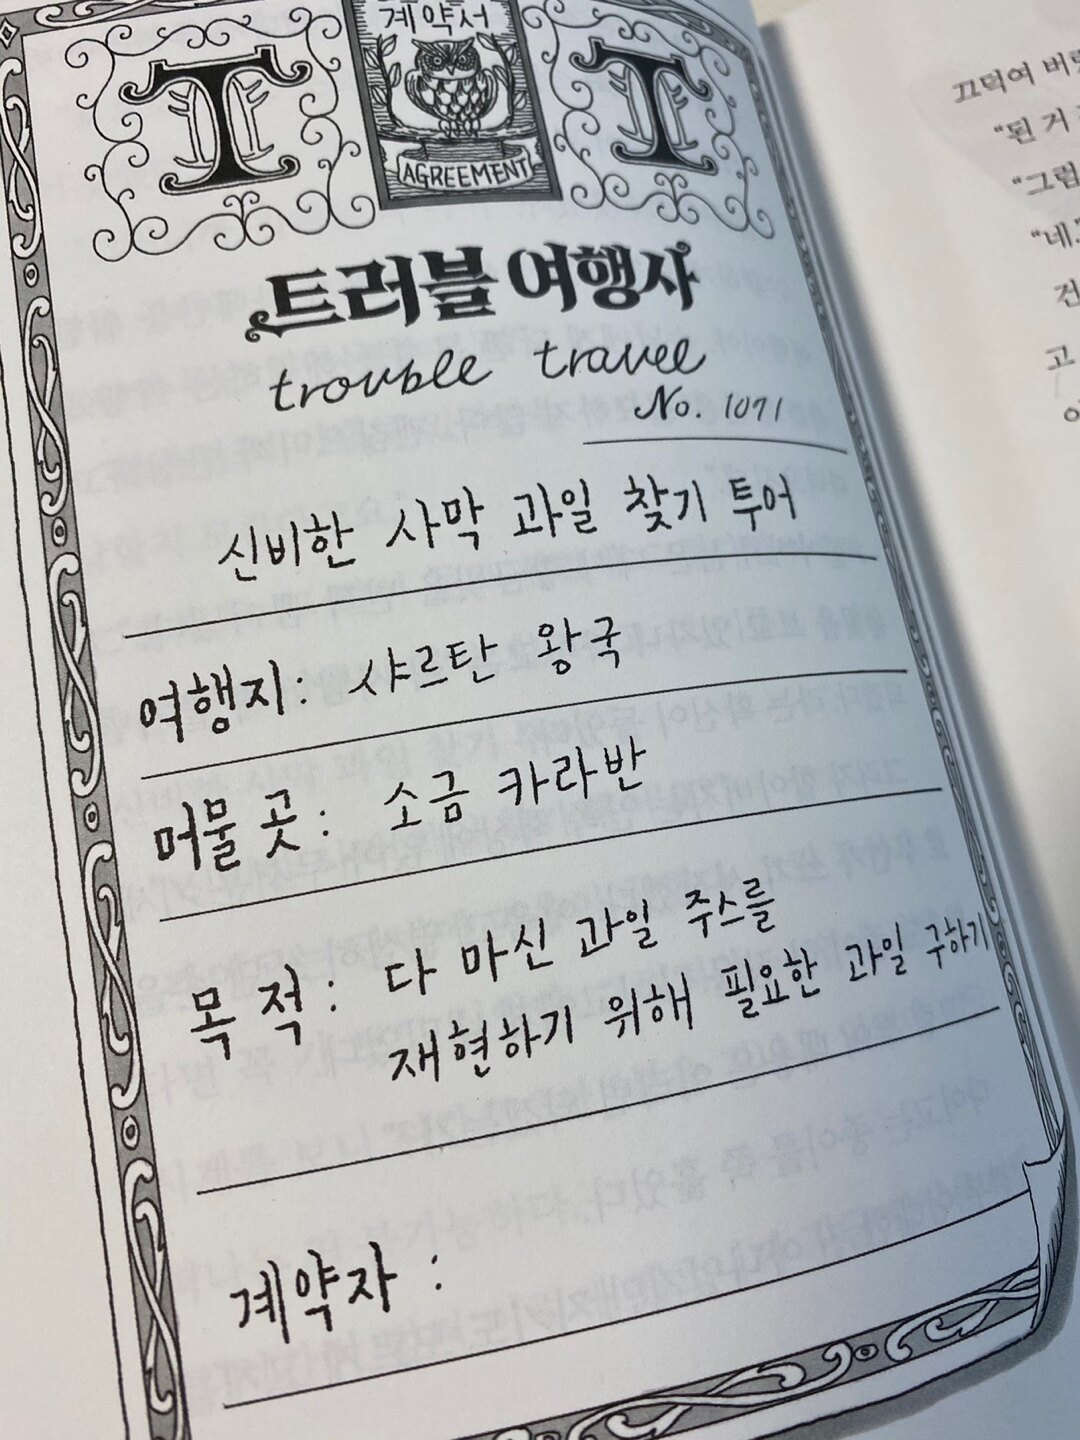 계약서
T T
AGREEMENT
트러블 여행사
trouble travel
No. 1071
신비한 사막 과일 찾기 투어
여행지: 샤르탄 왕국
머물 곳: 소금 카라반
목적: 다 마신 과일 주스를
재현하기 위해 필요한 과일 구하기
계약자:
끄덕여
“된 거
“그럼
“네
건
고